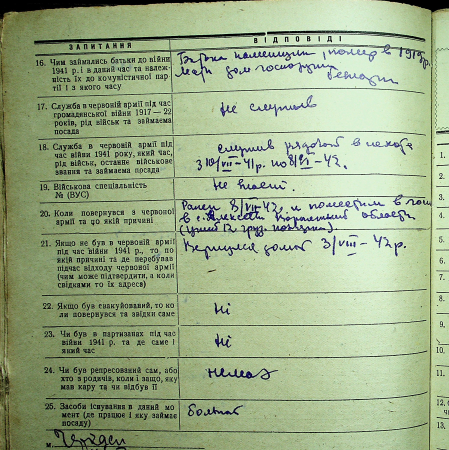 ЗАПИТАННЯ
ВІДПОВІДІ
16. Чим займались батьки до війни
1941 р. і в даний час та належ-
ність їх до комуністичної пар-
тії і з якого часу
помер в 1919 р.
Мати дом господиня
17. Служба в червоній армії під час
громадянської війни 1917—22
років, рід військ та займаєма
посада
Не служив
18. Служба в червоній армії під
час війни 1941 року, який час,
рід військ, останнє військове
звання та займаєма посада
служив рядовой в пехоте
з 10/VII-41 р. по 8/VI-42.
19. Військова спеціальність
№ (ВУС)
Не имеет.
20. Коли повернувся з червоної
армії та по якій причині
Ранен 8/VII-42 и
в с. Алексеевка области
21. Якщо не був в червоній армії
під час війни 1941 р., то по
якій причині та де перебував
підчас відходу червоної армії
(чим може підтвердити, а коли
свідками то їх адреса)
Вернулся домой 3/VIII-42 р.
22. Якщо був евакуйований, то ко-
ли повернувся та звідки саме
Ні
23. Чи був в партизанах під час
війни 1941 р. та де саме і
який час
Ні
24. Чи був репресований сам, або
хто з родичів, коли і защо, яку
мав кару та чи відбув її
немає
25. Засоби існування в даний мо-
мент (де працює і яку займає
посаду)
м.
1.
2.
3.
4.
5.
6.
7.
8.
9.
10.
11.
12.
13.